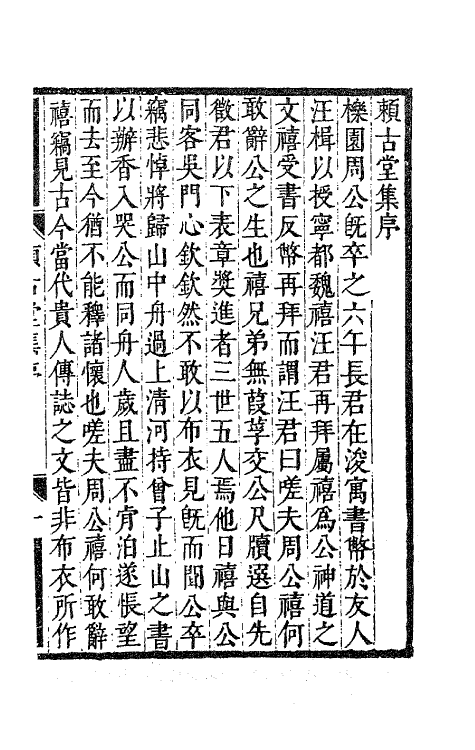 賴古堂集序
櫟園周公既卒之六年長君在浚寓書幣於友人
汪楫以授寧都魏禧汪君再拜屬禧爲公神道之
文禧受書反幣再拜而謂汪君曰嗟夫周公禧何
敢辭公之生也禧兄弟無葭莩交公尺牘選自先
徵君以下表章獎進者三世五人焉他日禧與公
同客吳門心欽欽然不敢以布衣見既而聞公卒
竊悲悼將歸山中舟過上清河持曾子止山之書
以瓣香入哭公而同舟人歲且盡不肯泊遂悵望
而去至今猶不能釋諸懷也嗟夫周公禧何敢辭
禧竊見古今當代貴人傳誌之文皆非布衣所作
賴古堂集序
一